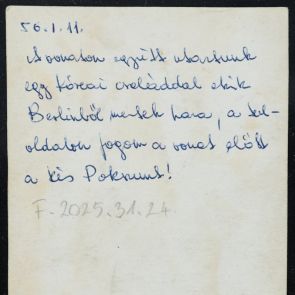 56.1.11.
A vonaton együtt utaztunk
egy kóreai családdal akik
Berlinből mentek haza, a bal-
oldalon fogom a vonat előtt
a kis Poksunt!
F. 2025.31.24.